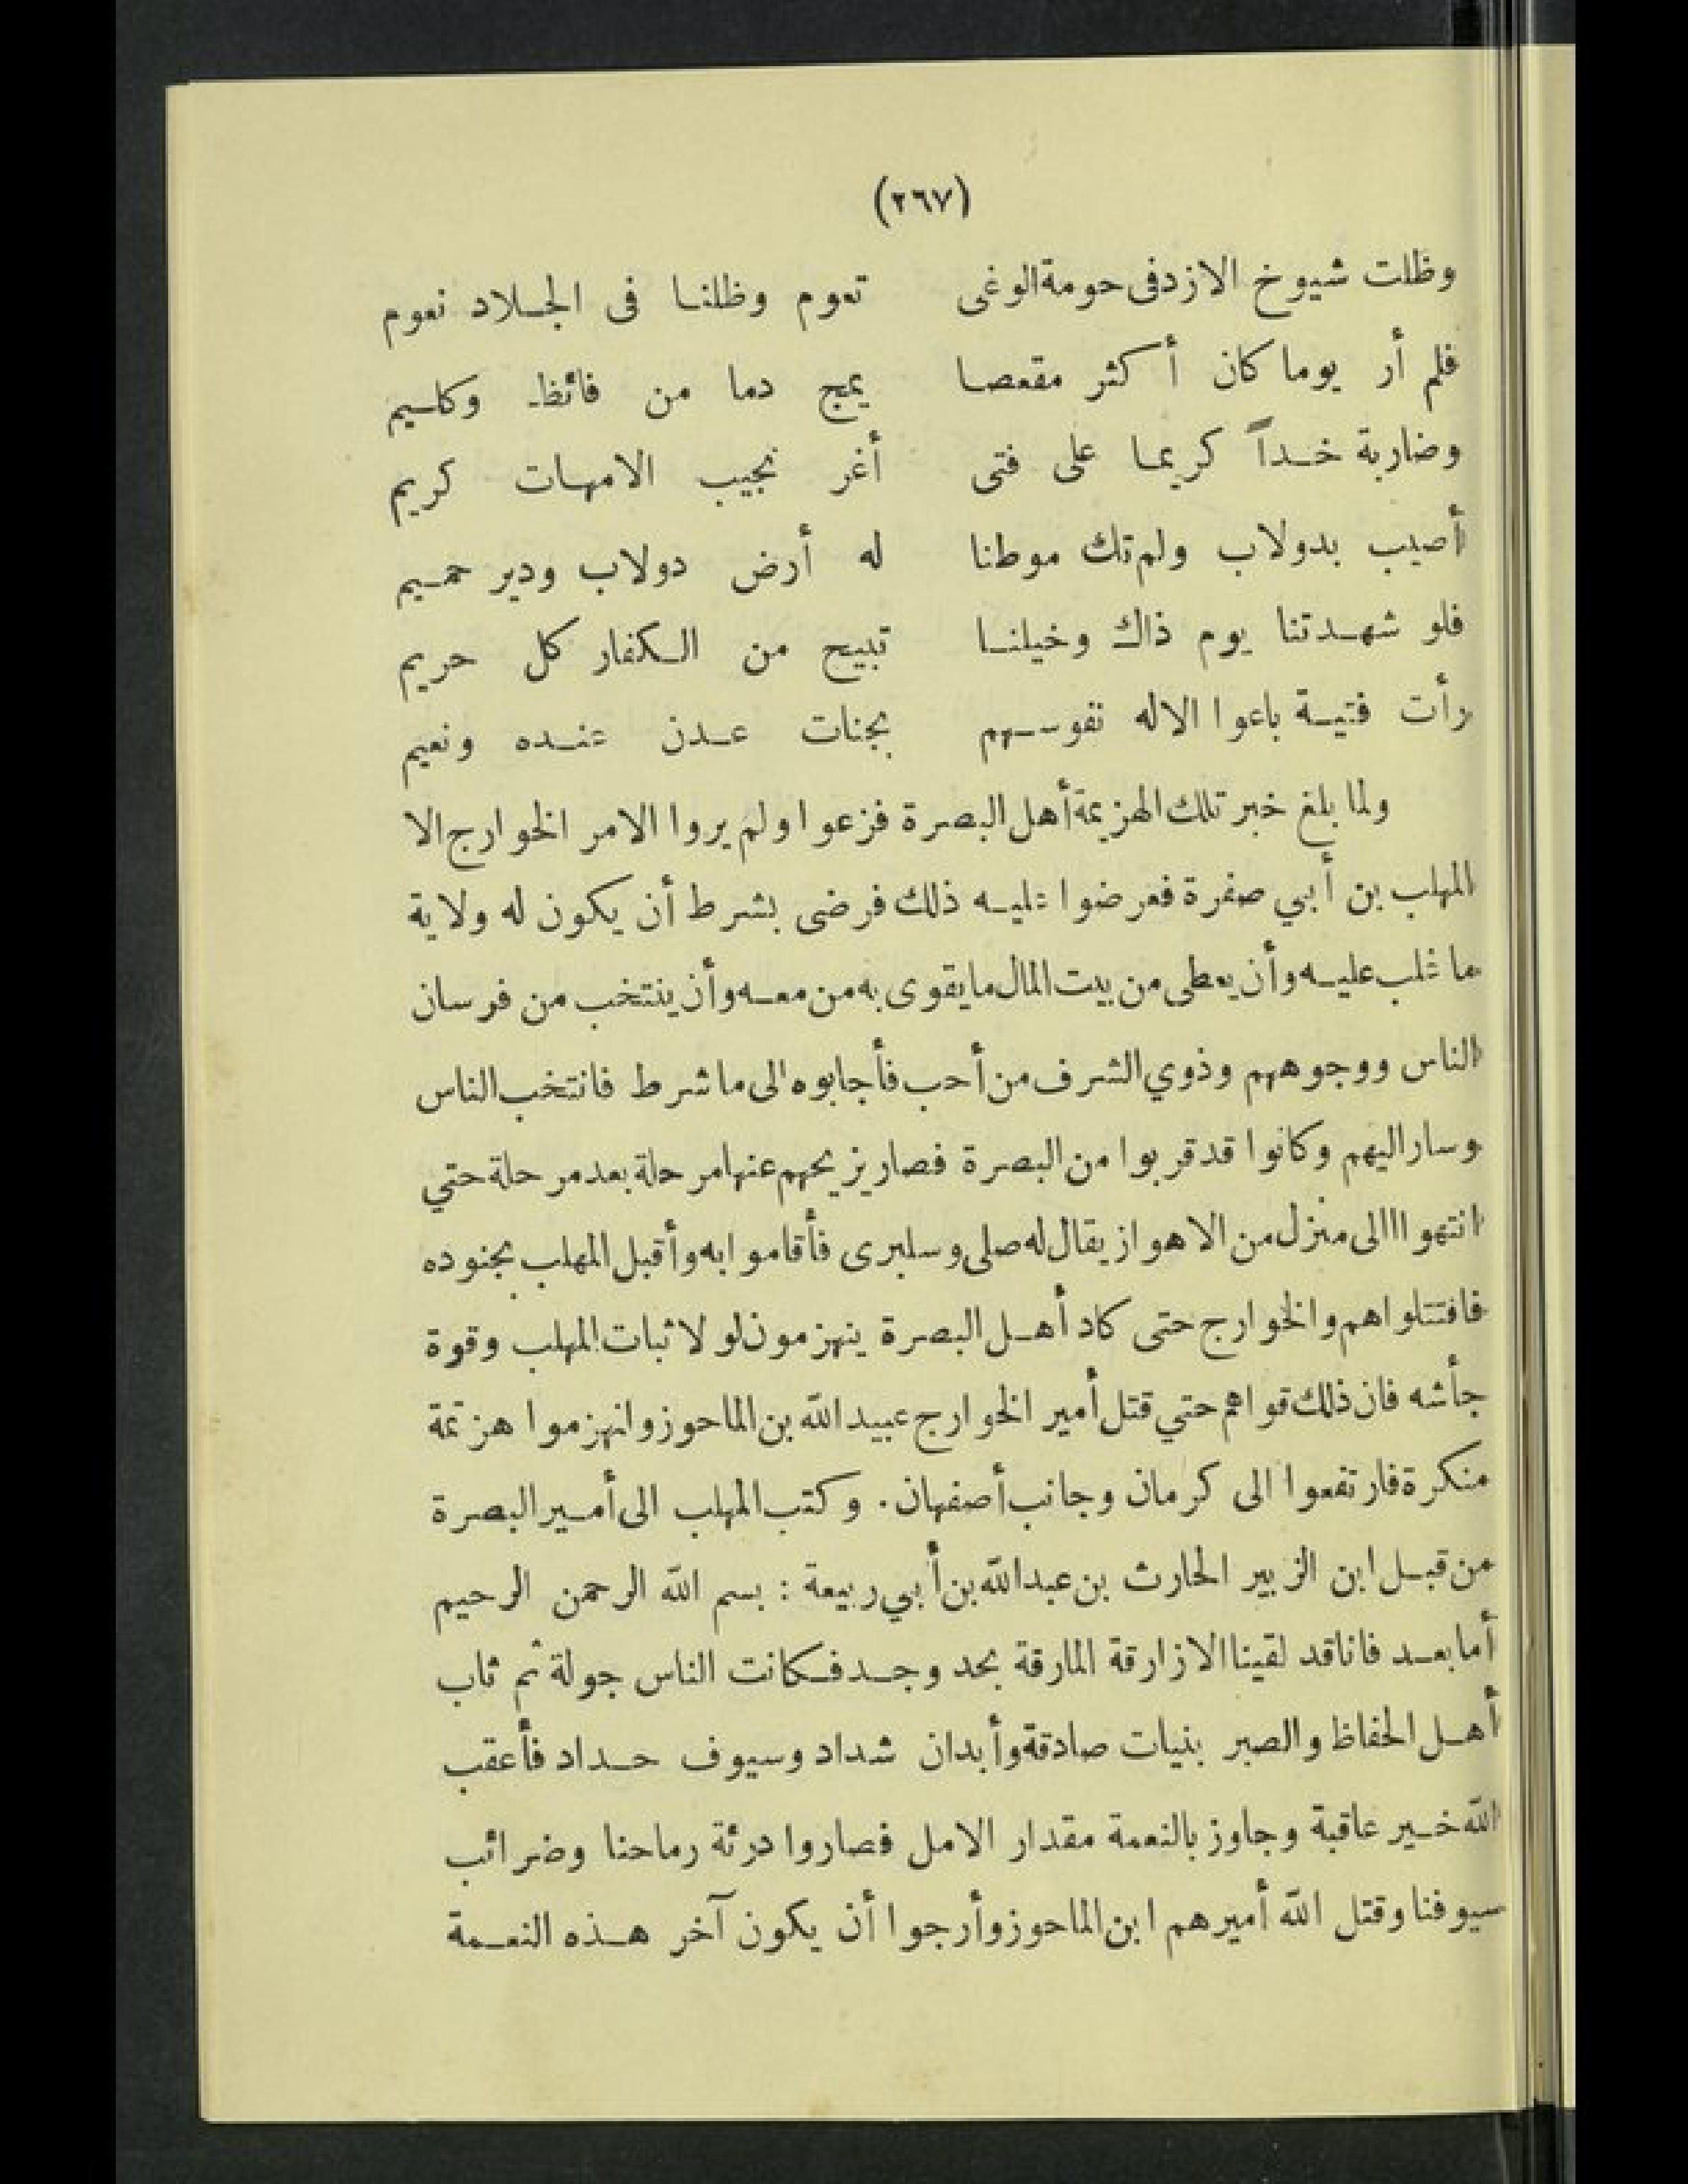 (٢٦٧)
وظلت شيوخ الازدفى حومة الوغى تعوم وظلنا فى الجلاد نعوم
فلم أر يوما كان أكثر مقعصا يمج دما من فائظ وكليم
وضاربة خداً كريما على فتى أغر نجيب الامهات كريم
أصيب بدولاب ولم تك موطنا له أرض دولاب ودير حميم
فلو شهدتنا يوم ذاك وخيلنا تبيح من الكفار كل حريم
رأت فتية باعوا الاله نفوسهم بجنات عدن عنده ونعيم
ولما بلغ خبر تلك الهزيمة أهل البصرة فزعوا ولم يروا الامر الخوارج الا
المهلب بن أبي صفرة فعرضوا عليه ذلك فرضى بشرط أن يكون له ولاية
ما غلب عليه وأن يعطى من بيت المال ما يقوى به من معه وأن ينتخب من فرسان
الناس ووجوههم وذوي الشرف من أحب فأجابوه الى ما شرط فانتخب الناس
وسار اليهم وكانوا قد قربوا من البصرة فصار يزيحهم عنها مرحلة بعد مرحلة حتي
انتهوا االى منزل من الاهواز يقال له صلى وسلبرى فأقاموا به وأقبل المهلب بجنوده
فافتتلوا هم والخوارج حتى كاد أهل البصرة ينهزمون لولا ثبات المهلب وقوة
جأشه فان ذلك قواهم حتي قتل أمير الخوارج عبيد الله بن الماحوز وانهزموا هزيمة
منكرة فارتفعوا الى كرمان وجانب أصفهان. وكتب المهلب الى أمير البصرة
من قبل ابن الزبير الحارث بن عبد الله بن أبي ربيعة : بسم الله الرحمن الرحيم
أما بعد فانا قد لقينا الازارقة المارقة بحد وجد فكانت الناس جولة ثم ثاب
أهل الحفاظ والصبر بنيات صادقة وأبدان شداد وسيوف حداد فأعقب
الله خير عاقبة وجاوز بالنعمة مقدار الامل فصاروا درئة رماحنا وضرائب
سيوفنا وقتل الله أميرهم ابن الماحوز وأرجوا أن يكون آخر هذه النعمة